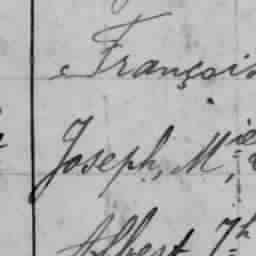 François
Joseph, M.ie
Albert 7h